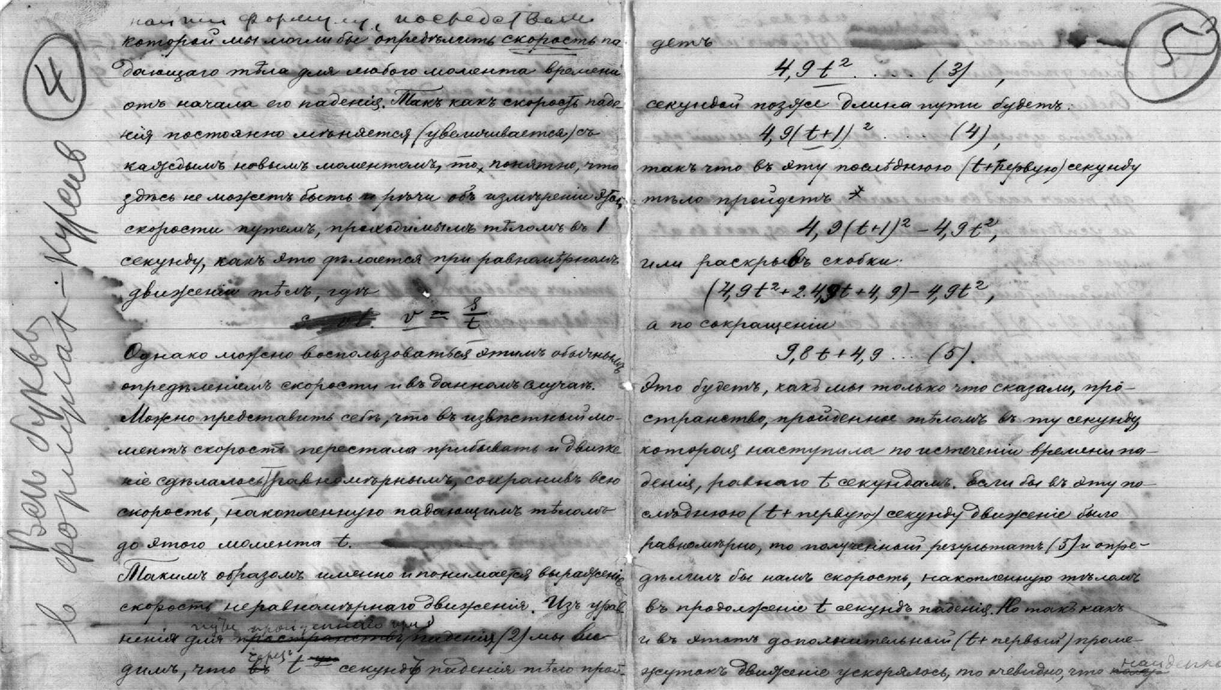 4
найти формулу, посредствомъ
которой мы могли бы опредѣлить скорость па-
дающаго тѣла для любого момента времени
отъ начала его паденія. Такъ какъ скорость паде-
нія постоянно мѣняется (увеличивается) съ
каждымъ новымъ моментомъ, то, понятно, что
здѣсь не можетъ быть и рѣчи объ измѣреніи этой
скорости путемъ, проходимымъ тѣломъ въ 1
секунду, какъ это дѣлается при равномѣрномъ
движеніи тѣлъ, гдѣ
v = s/t
Однако можно воспользоваться этимъ обычнымъ
опредѣленіемъ скорости и въ данномъ случаѣ.
Можно представить себѣ, что въ извѣстный мо-
ментъ скорость перестала прибывать и движе-
ніе сдѣлалось равномѣрнымъ, сохранивъ всю
скорость, накопленную падающимъ тѣломъ
до этого момента t.
Такимъ образомъ именно и понимается выраженіе
скорость неравномѣрнаго движенія. Изъ урав-
нія для пути пройденнаго паденія (2) мы ви-
димъ, что черезъ t секундъ паденія тѣло прой-
Вѣсъ буквъ
в формулах - курсив
5
детъ
4,9t² .... (3),
секундой позже длина пути будетъ:
4,9(t+1)² .... (4),
такъ что въ эту послѣднюю (t+первую) секунду
тѣло пройдетъ
4,9(t+1)² − 4,9t²,
или раскрывъ скобки:
(4,9t²+2.4,9t+4,9)−4,9t²,
а по сокращеніи
9,8t+4,9 ... (5).
Это будетъ, какъ мы только что сказали, про-
странство, пройденное тѣломъ въ ту секунду,
которая наступила по истеченіи времени па-
денія, равнаго t секундамъ. Если бы въ эту по-
слѣднюю (t+первую) секунду движеніе было
равномѣрно, то полученный результатъ (5) и опре-
дѣлилъ бы намъ скорость, накопленную тѣломъ
въ продолженіе t секундъ паденія. Но такъ какъ
и въ этотъ дополнительный (t+первый) проме-
жутокъ движеніе ускорялось, то очевидно, что найденное